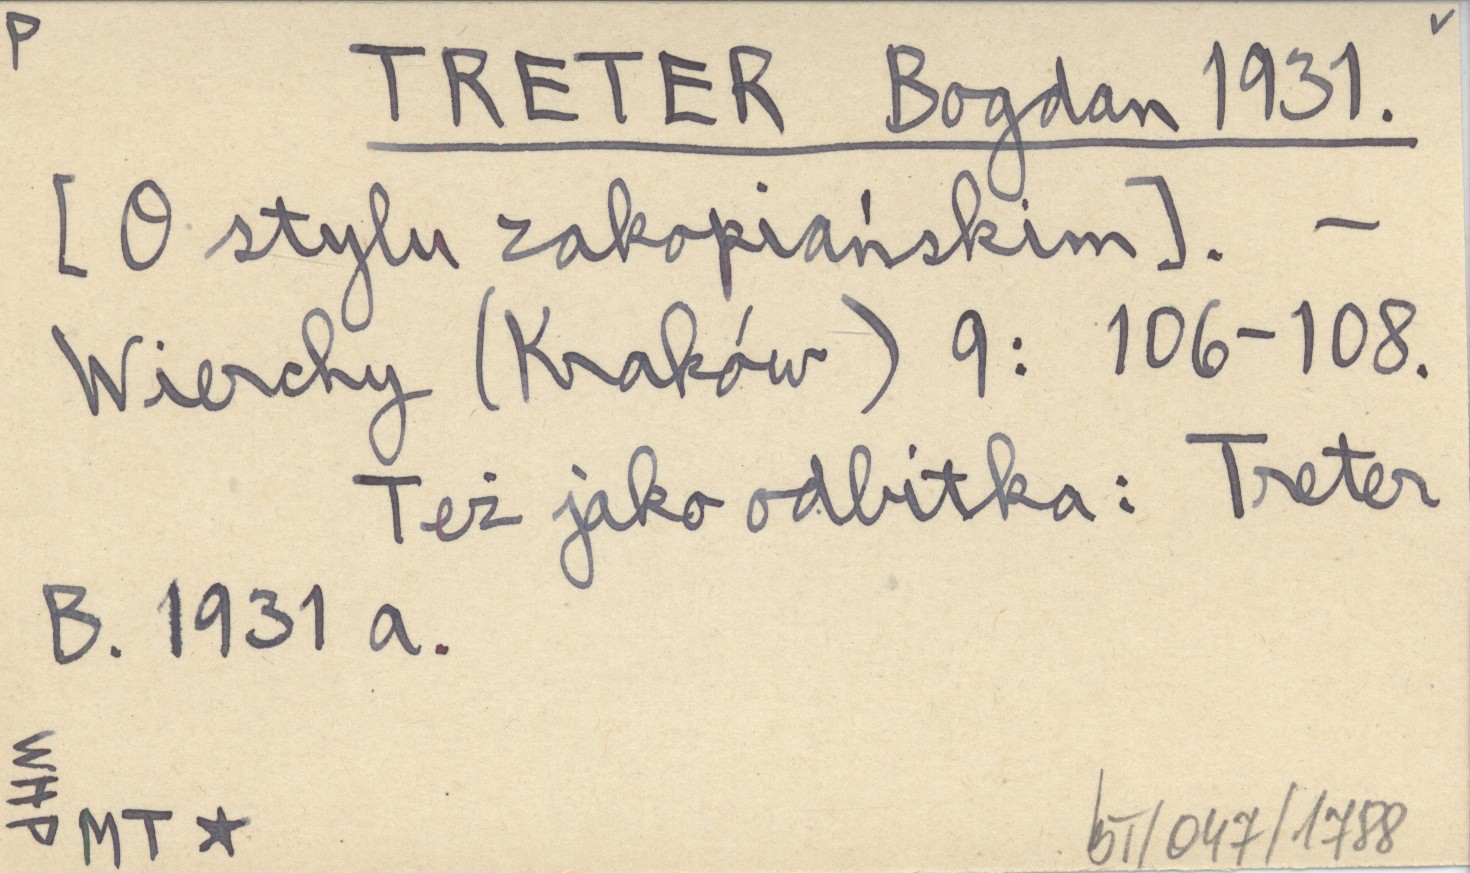 P
v
TRETER Bogdan 1931.
[O stylu zakopiańskim]. –
Wierchy (Kraków) 9: 106-108.
Też jako odbitka: Treter
B. 1931 a.
WHP
MT ★
bT/047/1788